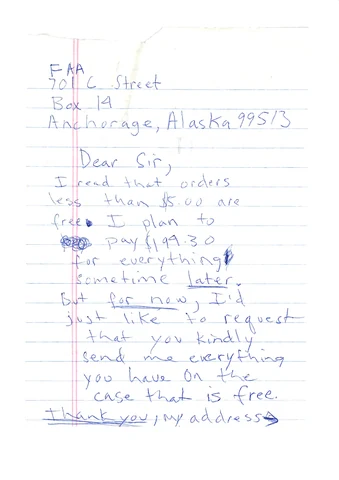 FAA
701 C Street
Box 14
Anchorage, Alaska 99513
Dear Sir,
I read that orders
less than $5.00 are
free. I plan to
pay $199.30
for everything
sometime later.
But for now, I'd
just like to request
that you kindly
send me everything
you have on the
case that is free.
Thank you, my address→